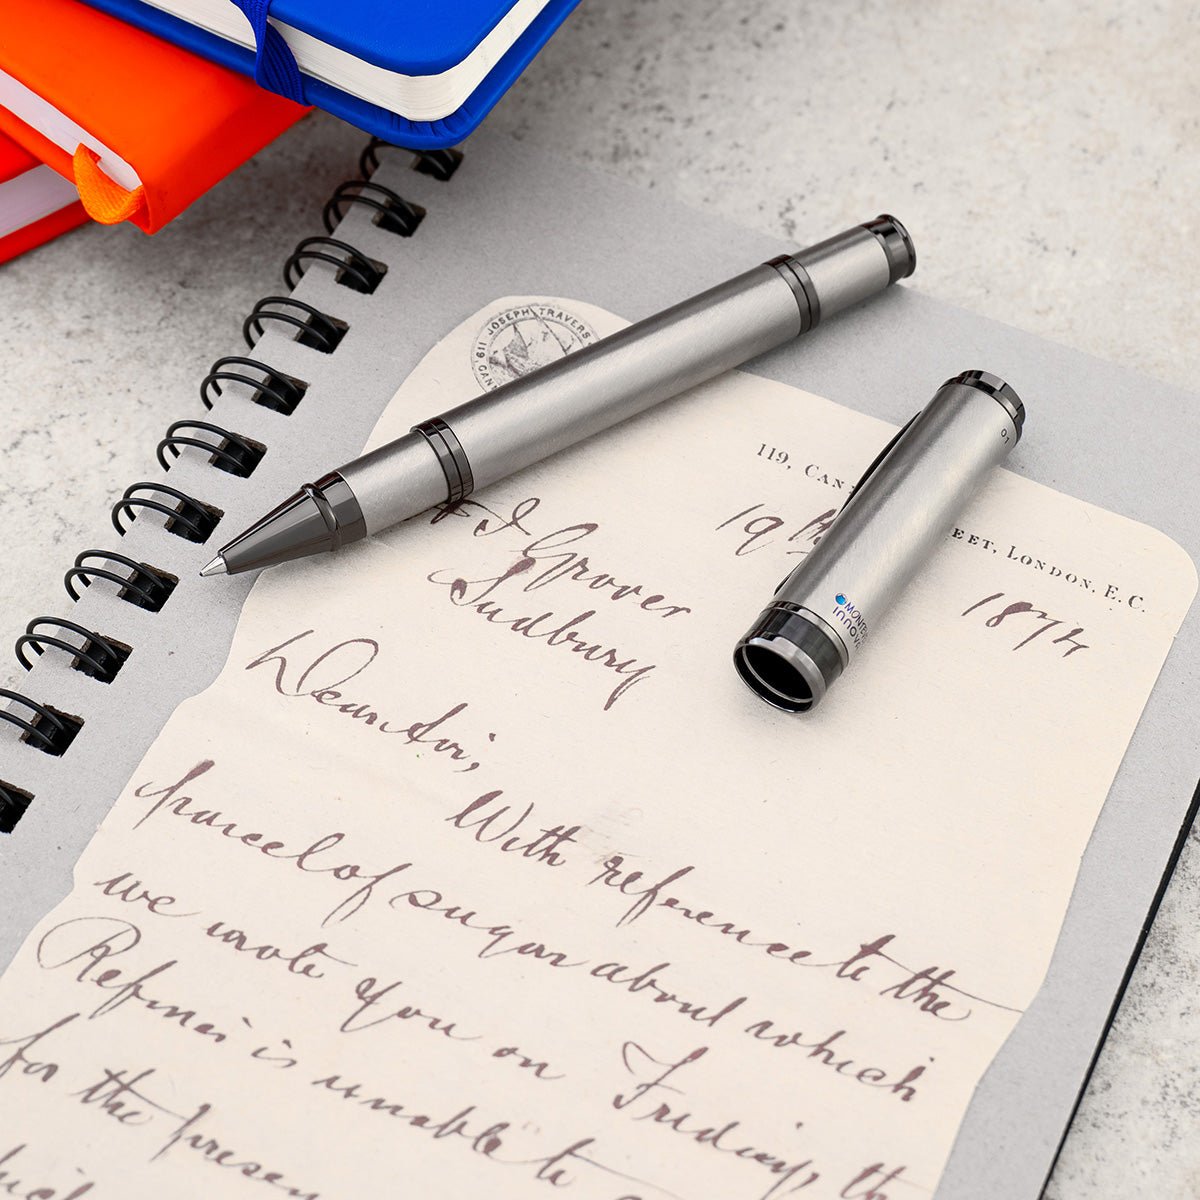 JOSEPH TRAVERS
119, CAN
EET, LONDON, E.C.
19th
1874
J Grover
Sudbury
Dear Sir,
With reference to the
parcel of sugar about which
we wrote you on Friday, th
Refiner is unable to
for the presen
01
MONTE
INNOVA